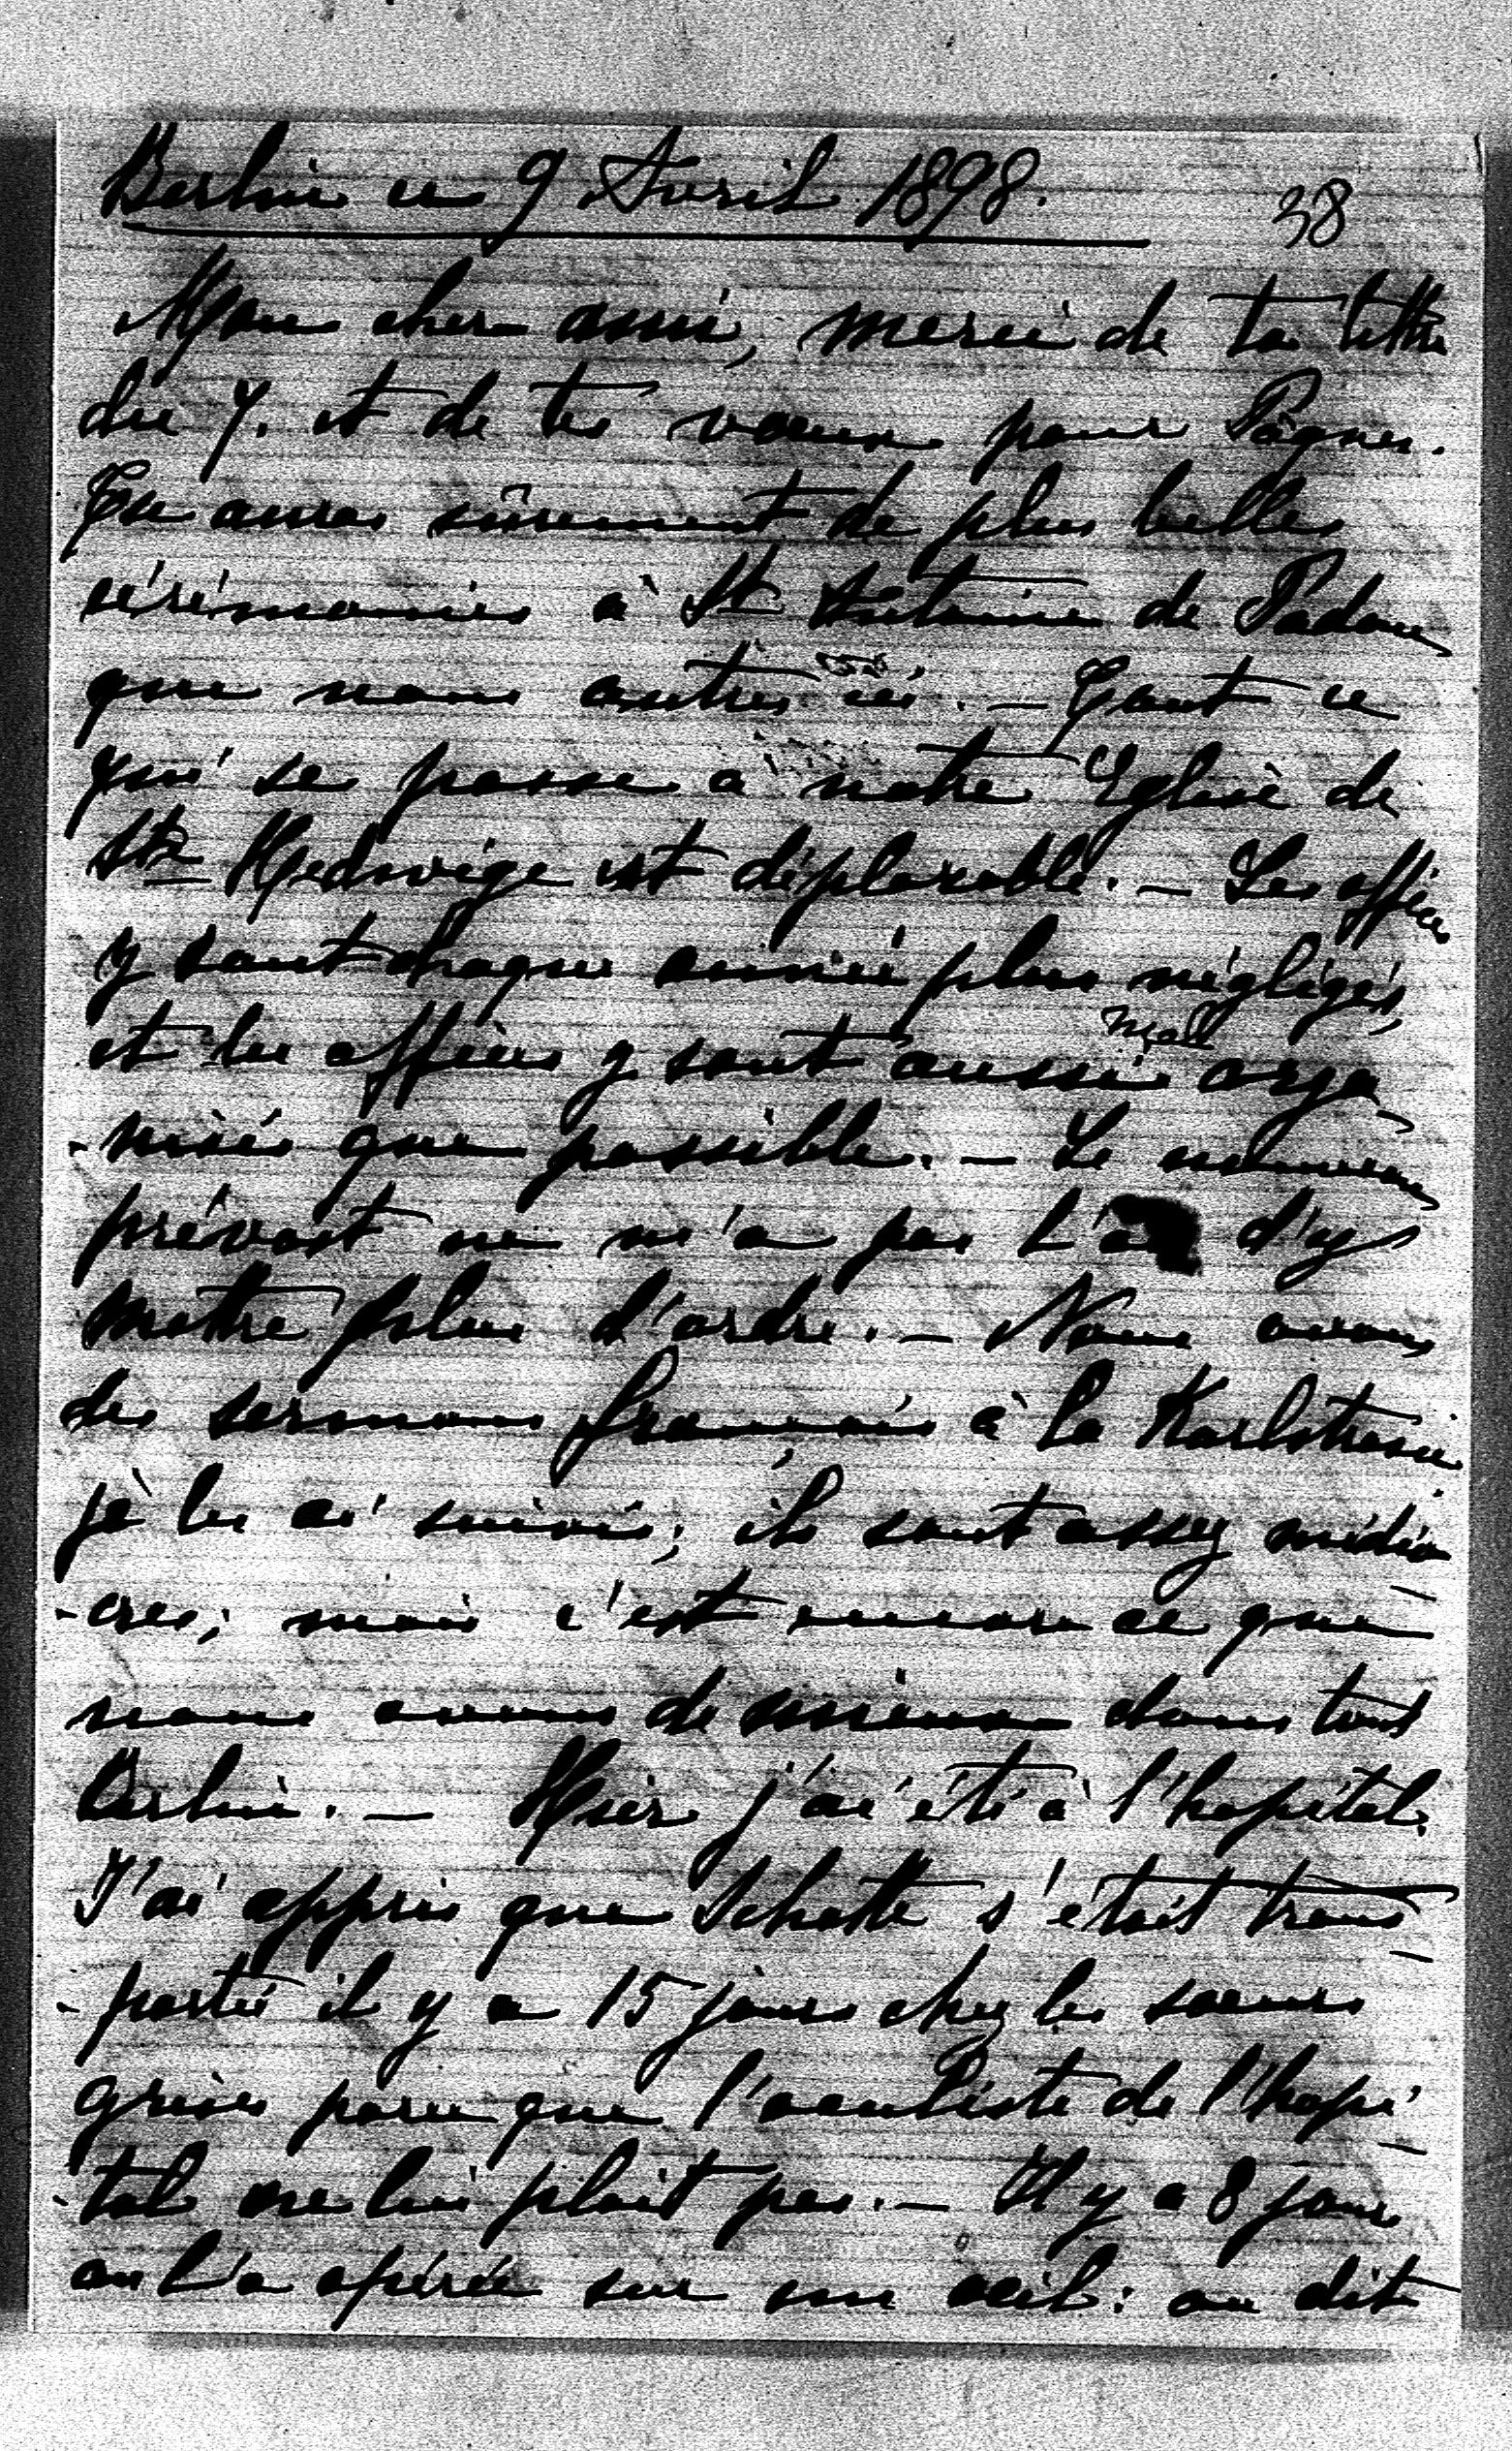 Berlin ce 9 Avril 1898.
38
Mon cher ami, merci de ta lettre
du 7. et de tes vœux pour Pâques.
Tu auras sûrement de plus belles
cérémonies à St Antoine de Padoue
que nous autres ici. — Tout ce
qui se passe à notre Eglise de
Ste Hedwige est déplorable. — Les offices
y sont chaque année plus négligés,
et les offices y sont aussi mal orga
-nisés que possible. — Le nouveau
prévost ne m'a pas l'air d'y
mettre plus d'ordre. — Nous avons
des sermons français à la Karlstrasse
je les ai suivis; ils sont assez médio
-cres; mais c'est encore ce que
nous avons de mieux dans tout
Berlin. — Hier j'ai été à l'hopital.
J'ai appris que Schotte s'était trans
-porté il y a 15 jours chez les sœurs
grises parce que l'oculiste de l'hopi
-tal ne lui plait pas. — Il y a 8 jours
on l'a opérée sur un œil: on dit